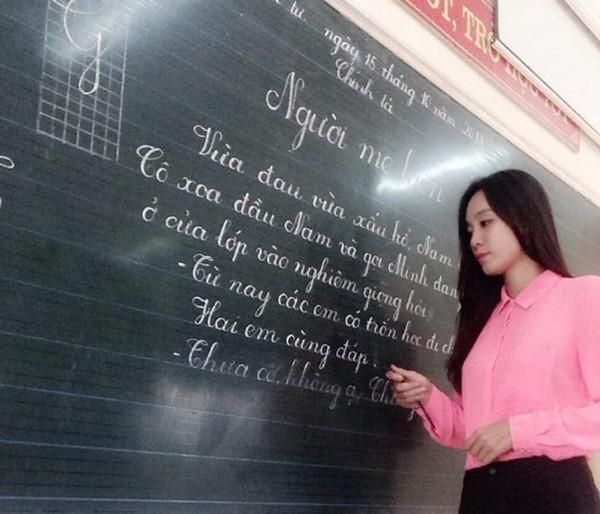 G
tư ngày 15 tháng 10 năm
Chính tả
Người mẹ hiền
Vừa đau vừa xấu hổ, Nam
Cô xoa đầu Nam và gọi Minh đang
ở cửa lớp vào nghiêm giọng hỏi
-Từ nay các em có trốn học đi ch
Hai em cùng đáp.
-Thưa cô, không ạ. Ch
ỐT, TR